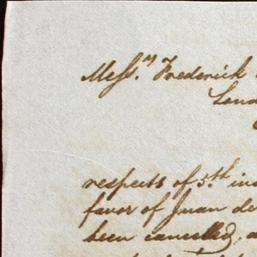 Mess.rs Frederick
Lond
respects of 5.th in
favor of Juan de
been cancelled, a